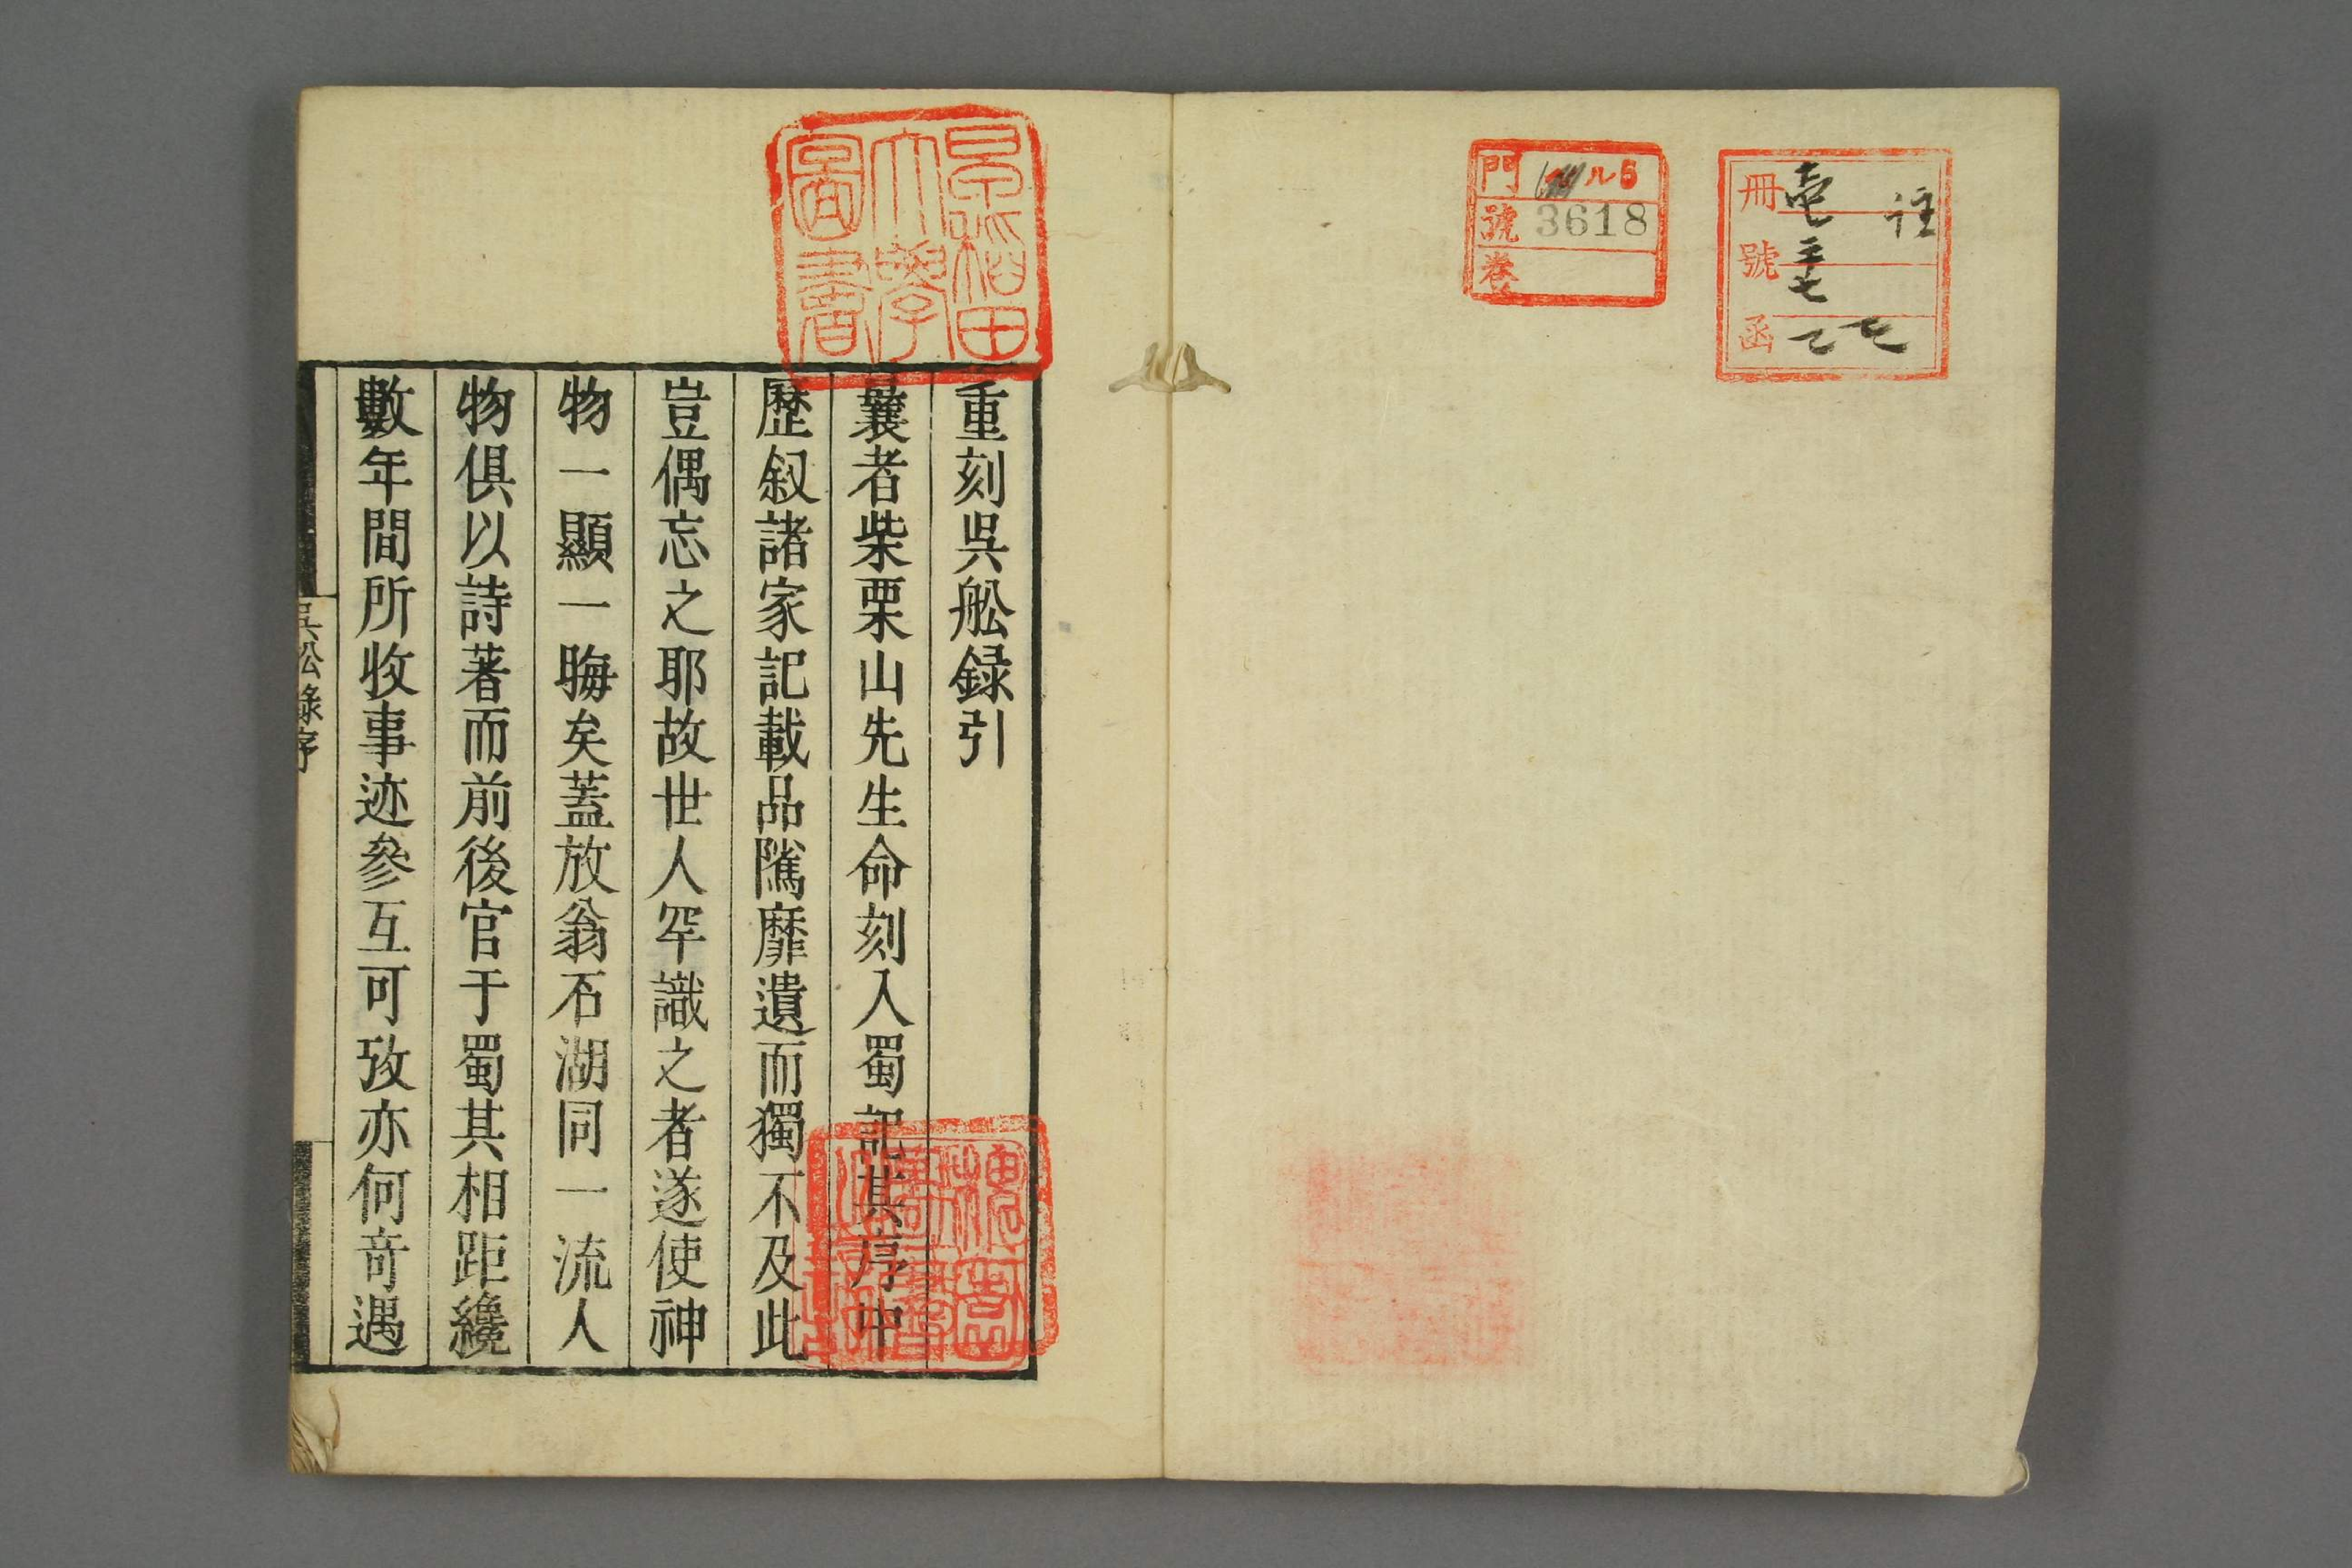 冊 壱 註
號 三七
函
門 ル5
號 3618
卷
早稲田
大學
圖書
重刻吳舩録引
曩者柴栗山先生命刻入蜀記其序中
歷叙諸家記載品隲靡遺而獨不及此
豈偶忘之耶故世人罕識之者遂使神
物一顯一晦矣蓋放翁石湖同一流人
物俱以詩著而前後官于蜀其相距纔
數年間所收事迹參互可攷亦何竒遇
吳舩錄序